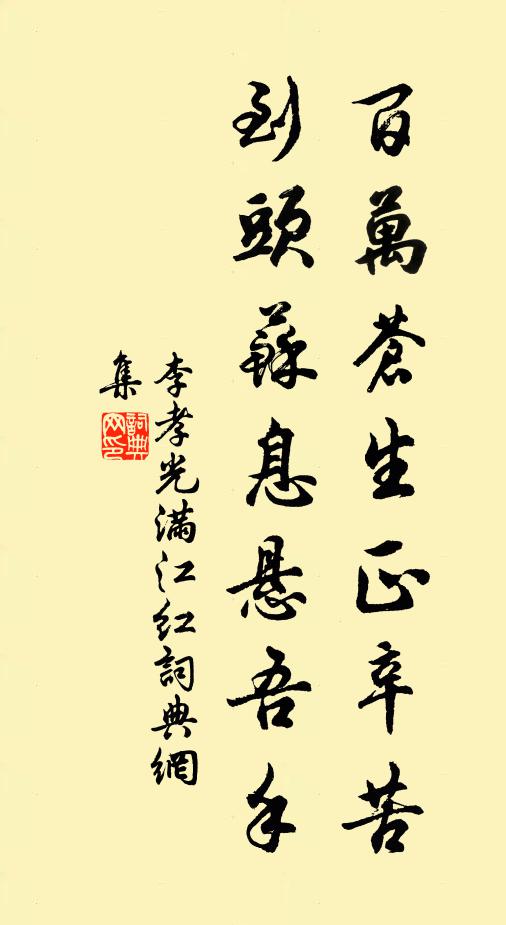 百萬蒼生正辛苦
到頭蘇息懸吾手
李孝光滿江红詞典網
集
詞典网印